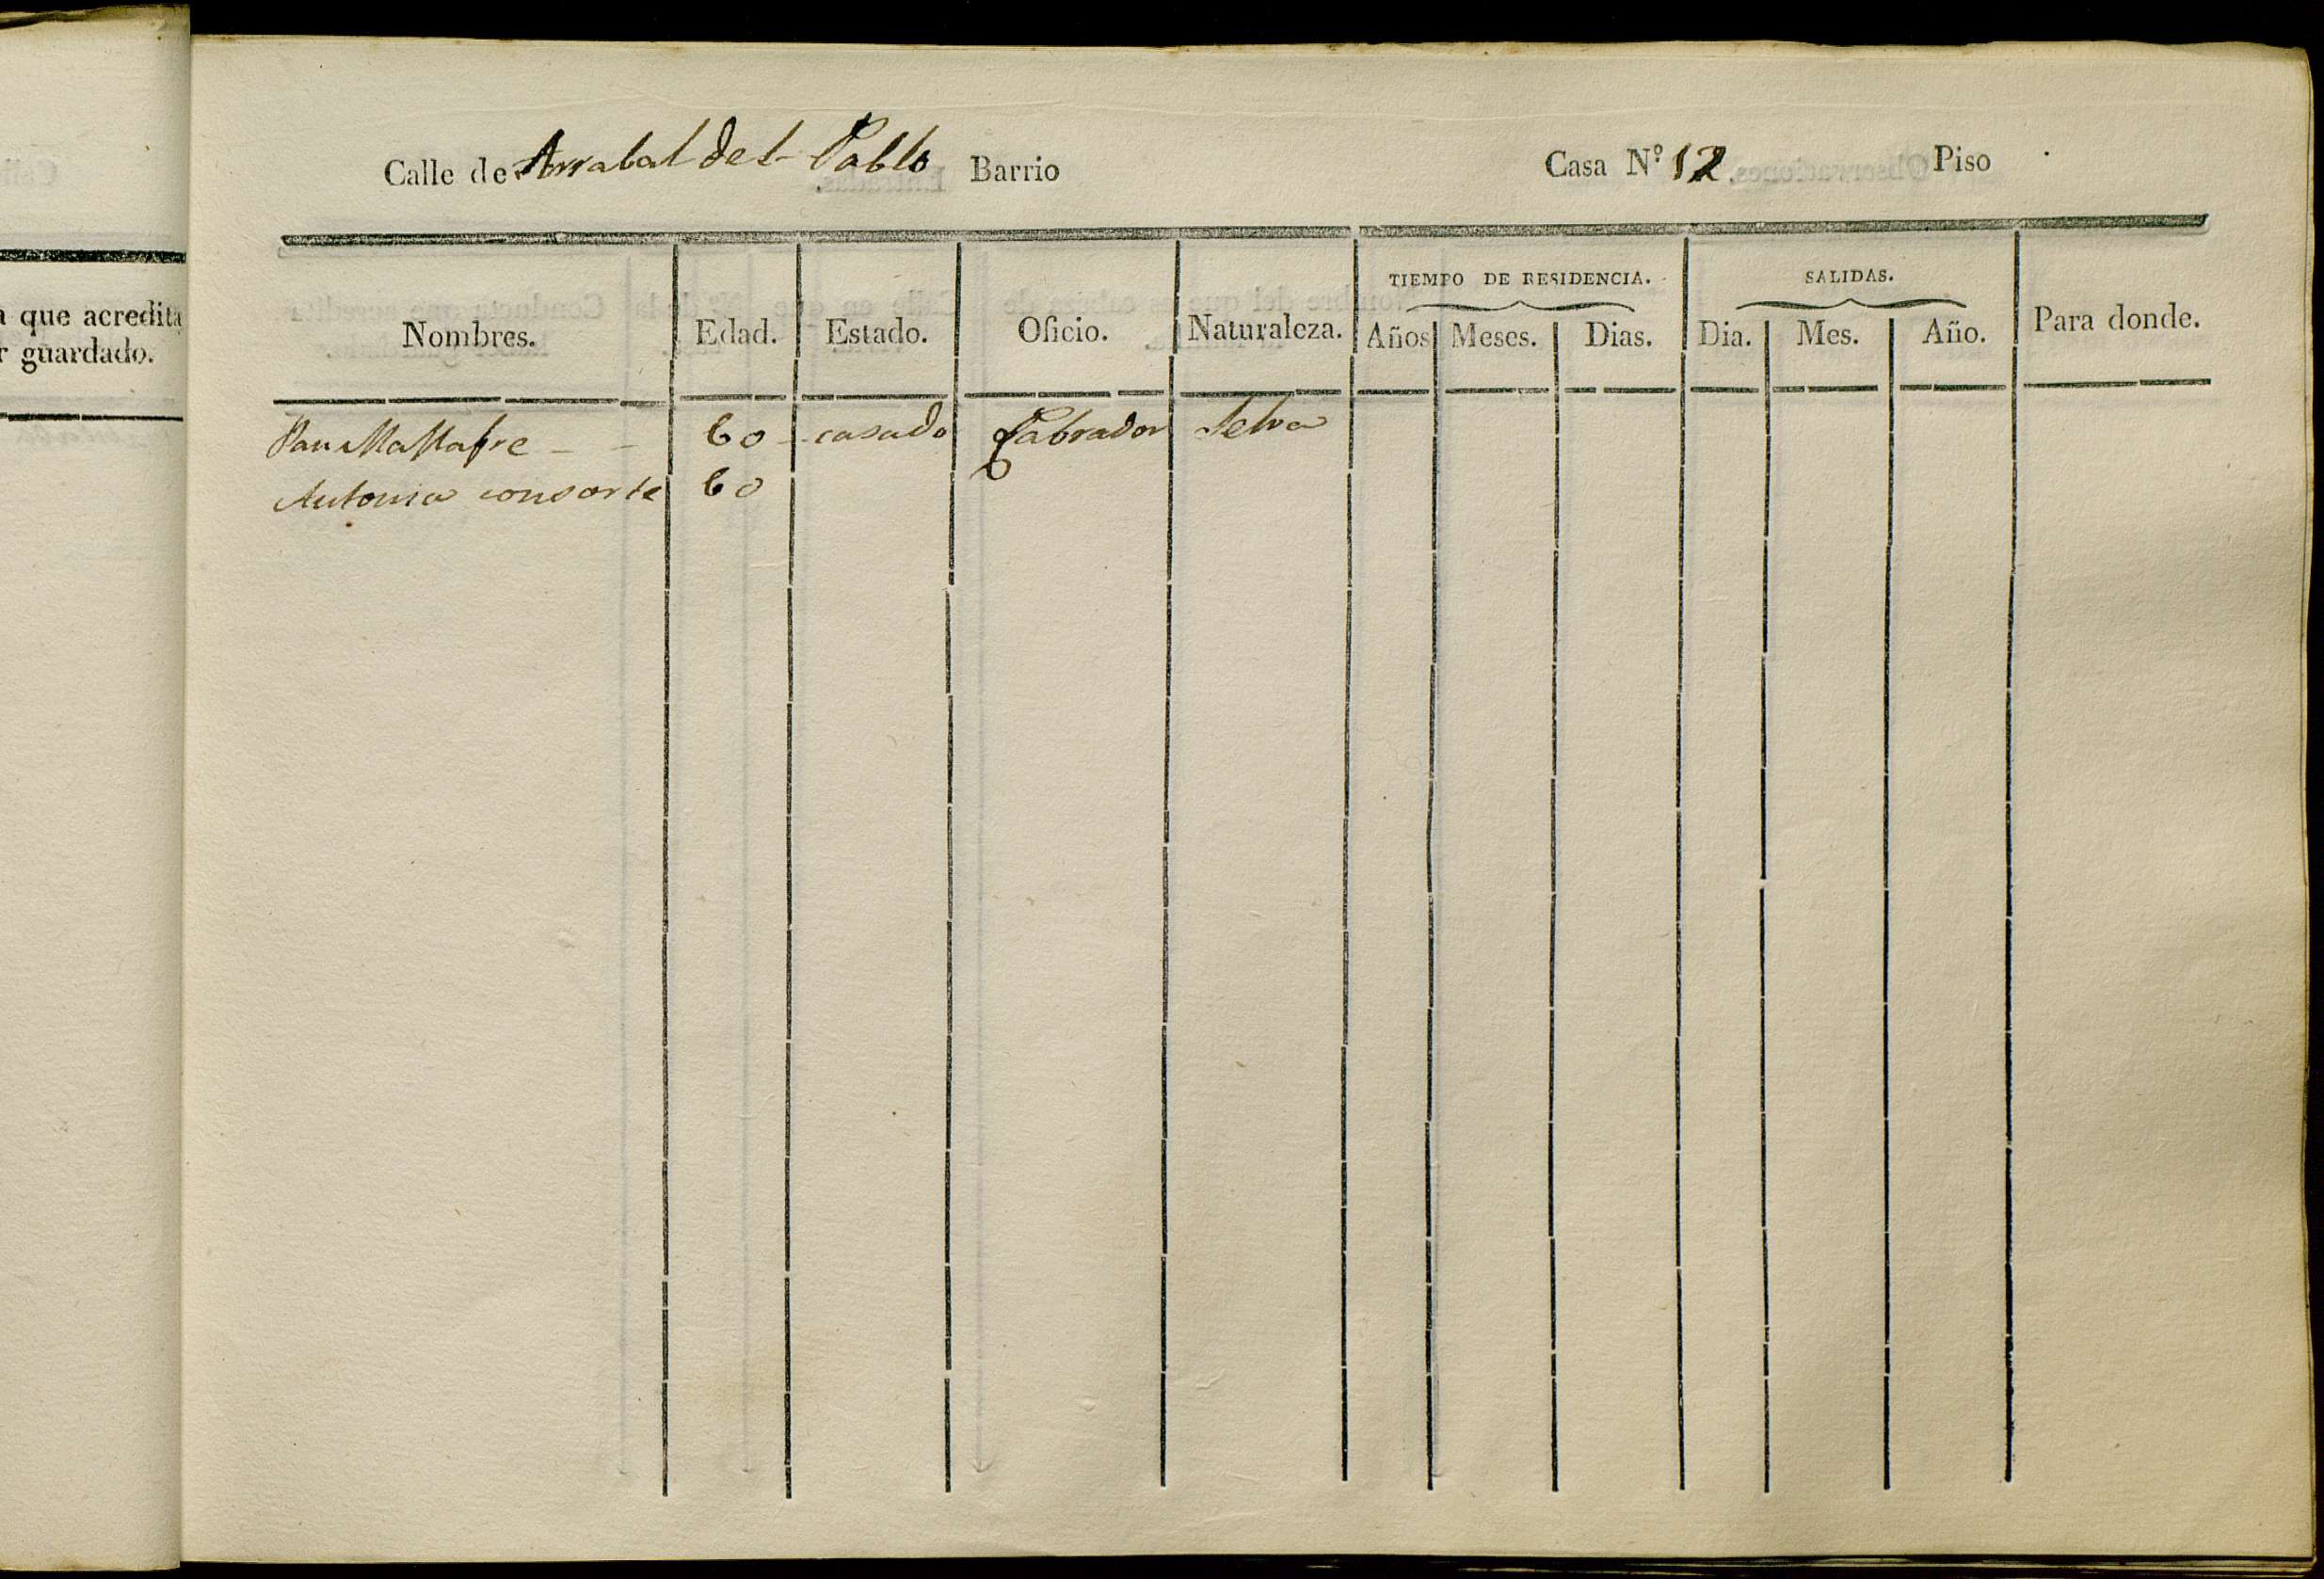 a que acredita
r guardado.
Calle de Arrabal de S. Pablo Barrio Casa N.º 12 Piso
TIEMPO DE RESIDENCIA. SALIDAS.
Nombres. Edad. Estado. Oficio. Naturaleza. Años Meses. Dias. Dia. Mes. Año. Para donde.
Pau 60 casado Labrador Selva
Antonia consorte 60